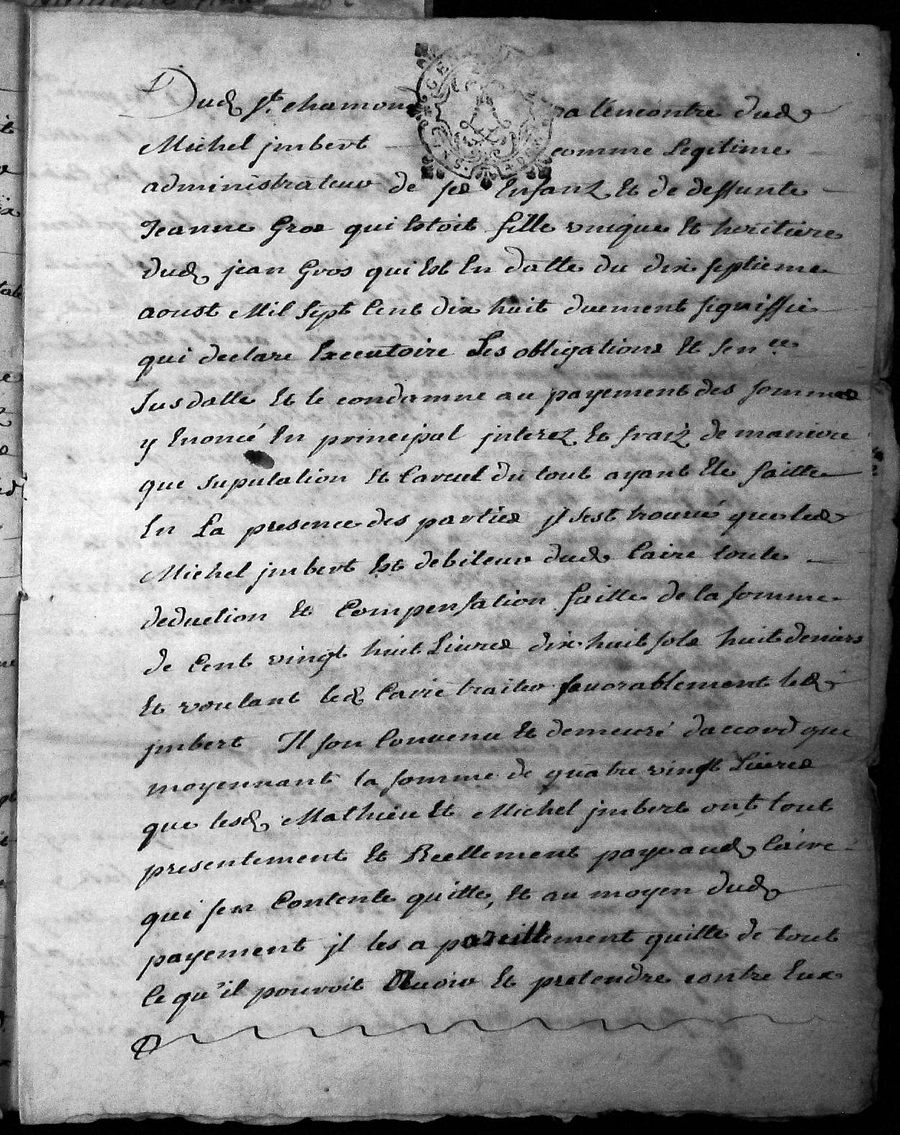 Dud St. chamond a lencontre dud
Michel jmbert comme Legitime
administrateur de ses Enfanz Et de deffunte
Jeanne Gros qui Estoit fille unique Et heritiere
dud jean Gros qui Est En datte du dix septieme
aoust Mil Sept Cent dix huit duement signiffié
qui declare Executoire Les obligations Et sen.ce
Susdatte Et le condamne au payement des sommes
y Enoncé En principal jnterez Et fraiz de maniere
que suputation Et Carcul du tout ayant Ete faitte
En La presence des parties jl sest trouvé que led
Michel jmbert Est debiteur dud Caire toute
deduction Et Compensation faitte de la somme
de Cent vingt huit Livres dix huit sols huit deniers
Et voulant led Caire traiter favorablement led
jmbert Il son Convenu Et demeuré daccord que
moyennant la somme de quatre vingt Livres
que lesd Mathieu Et Michel jmbert ont tout
presentement Et Reellement payé aud Caire
qui sen Contente quitte, Et au moyen dud
payement jl les a pareillement quitte de tout
ce qu'il pouvoit Avoir Et pretendre contre Eux